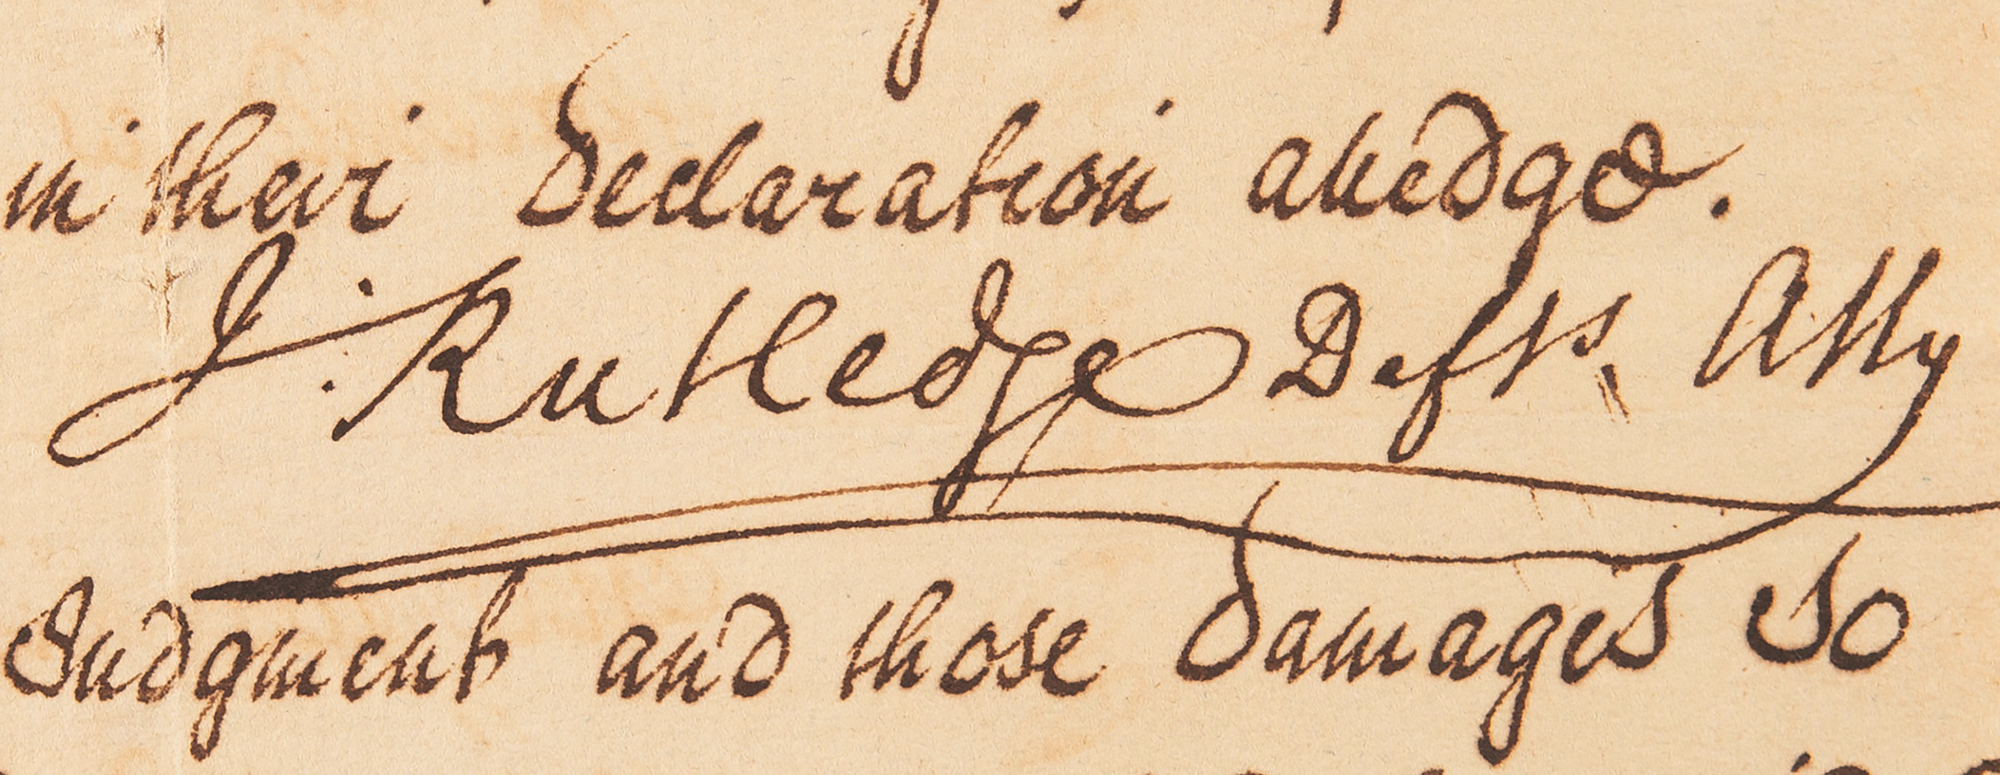 in their Declaration alledge.
J. Rutledge Defts. Atty
Judgment and those Damages so